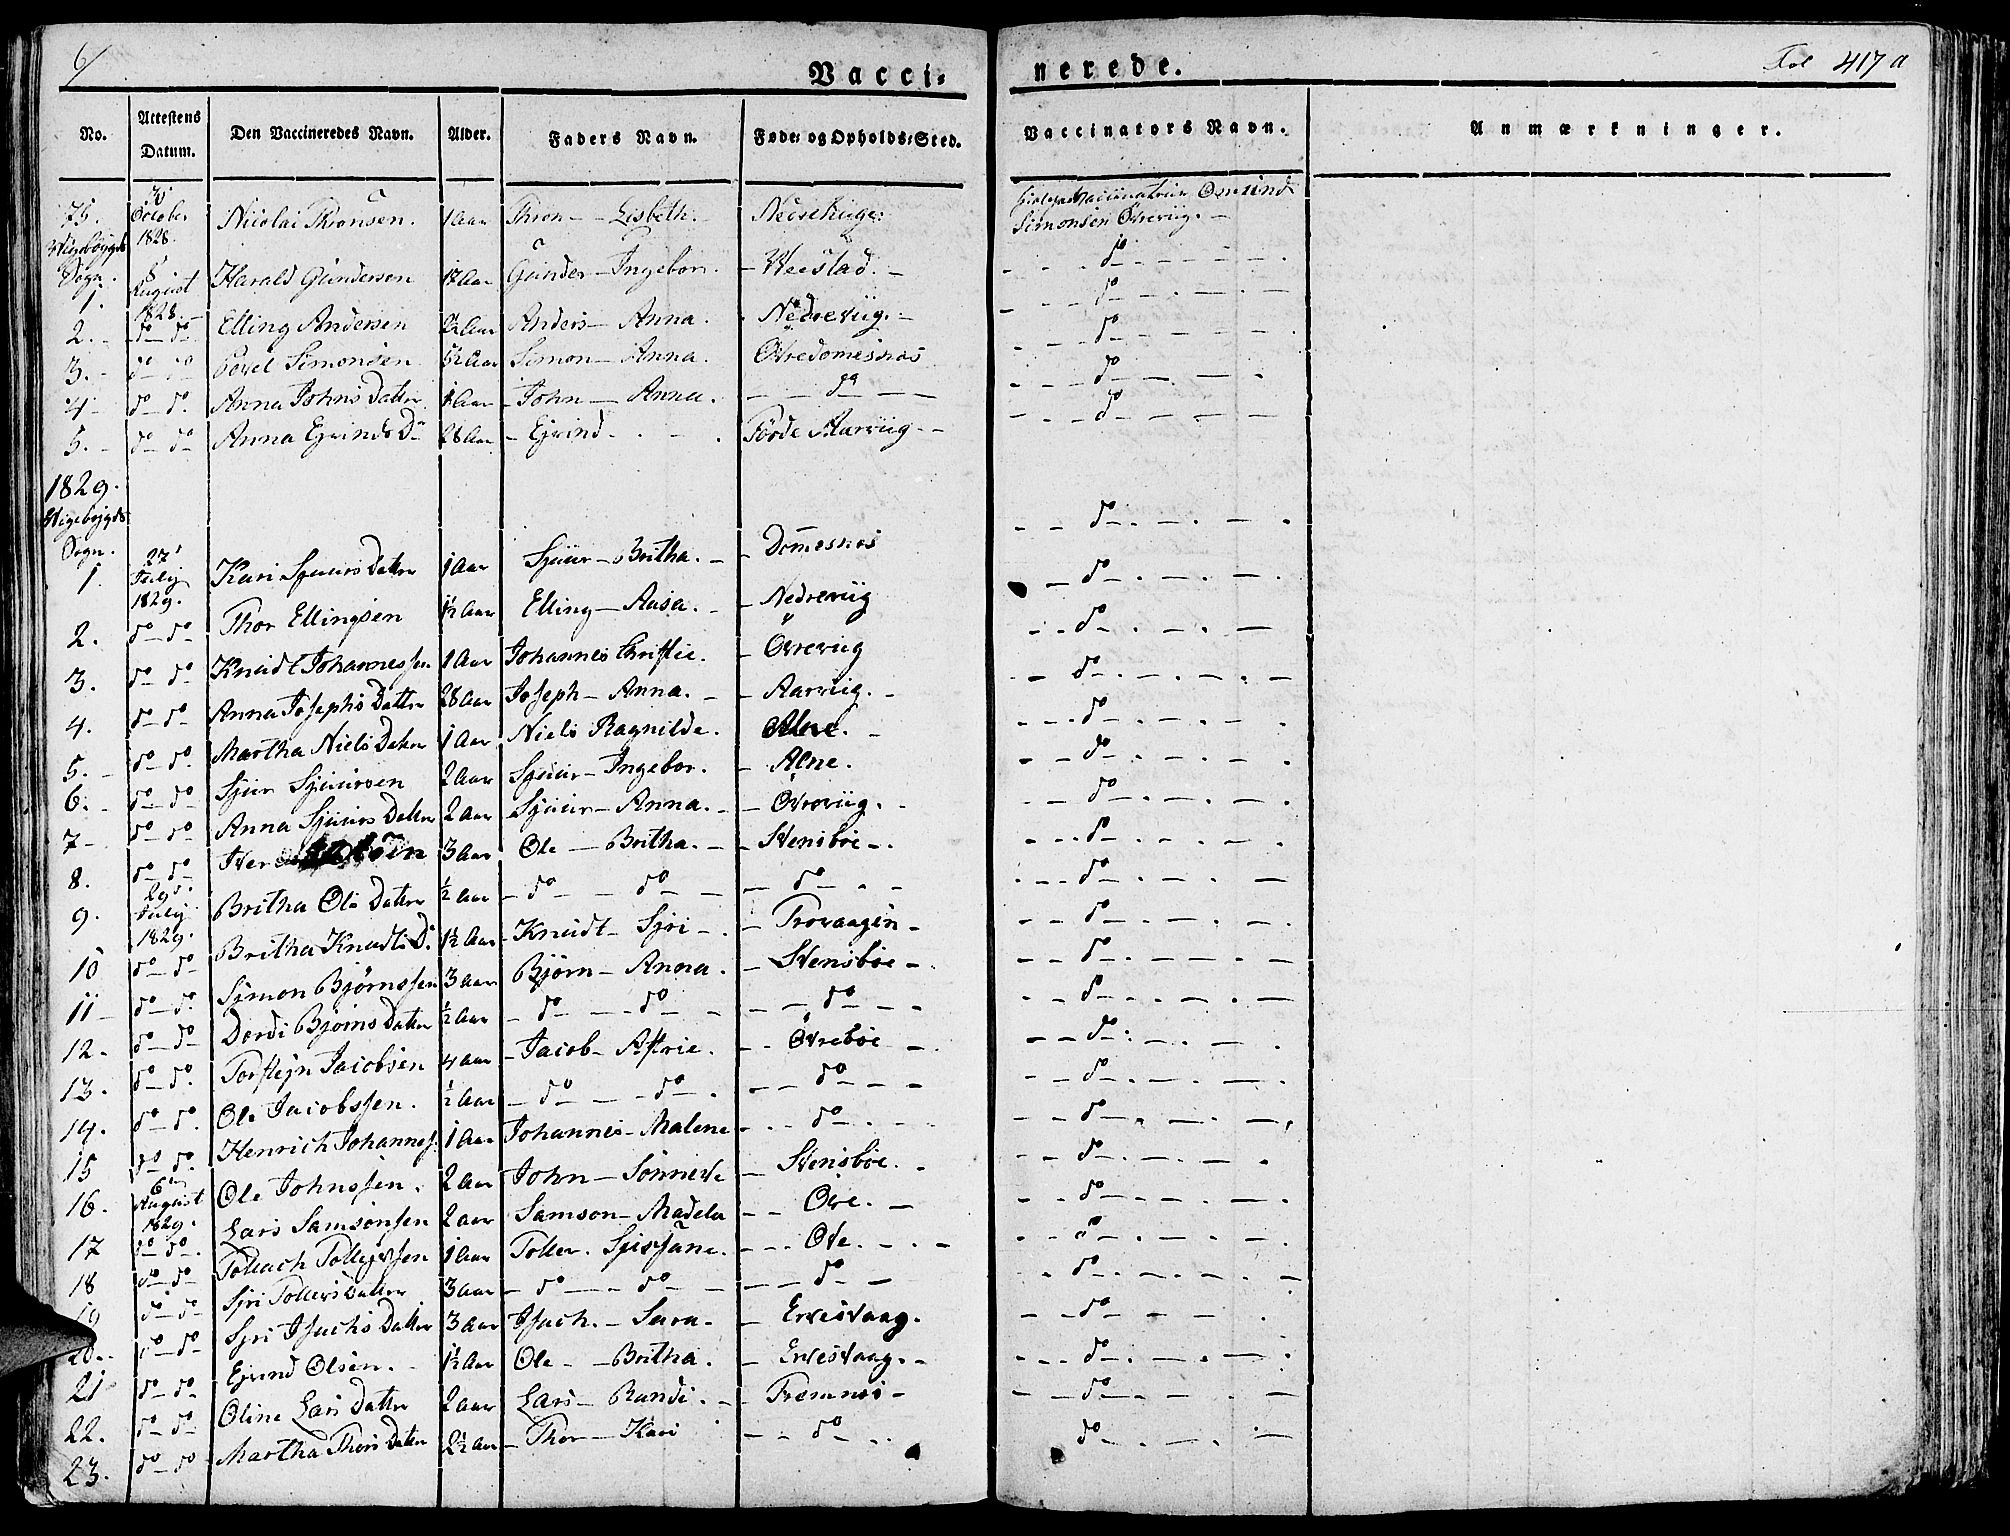 6/
Vacci-
nerede.
Fol 417 a
No. Attestens Datum. Den Vaccineredes Navn. Alder. Faders Navn. Føde- og Opholds-Sted. Vaccinators Navn. Anmærkninger.
75. October 1828. Nicolai Thronsen. 1 Aar Thron - Lisbeth. Vaccinateur Osmund
Simonsen Øvreviig. -
Sogn.
1. August 1828. Harald Gunderson Aar Gunder - Ingebor. - Veestad. - do
2. do do Elling Andersen Aar Anders - Anna. Nedreviig. - do
3. do do Povel Simonsen Aar Simon - Anna. Øvredomesnes do
4 do do. Anna Johns Datter Aar - John - Anna. do do
5. do do Anna Ejvinds D 28 Aar - Ejvind. Førde Aarviig - do
1829.
Vigebojgds
Sogn.
1. 27 July 1829. Kari Sjuurs Datter 1 Aar Sjuur - Britha. - Domesnes do
2. do do Thor Ellingsen 1½ Aar Elling - Aasa. - Nedreviig do
3. do do Knudt Johannessen 1 Aar Johannes Christie. - Øvreviig do
4. do do Anna Josephs Datter 28 Aar Joseph - Anna. - Aarviig. - do
5. do do. Martha Niels Datter 1 Aar Niels Ragnilde. Alne. - do
6. do do Sjur Sjuursen 2 Aar Sjuur - Ingebor. - Alne. do
7 do do Anna Sjuurs Datter 2 Aar Sjuur - Anna. - Øvreviig. do
8. do do 3 Aar Ole - Britha. - Stensbøe -. do
9. 29 July 1829. Britha Ole Datter ½ Aar - do - do - do do
10 do do Britha Knudts D. 1½ Aar - Knudt - Sjri - Trovaagen - do
11 do do. Simon Bjørnssen 3 Aar Bjørn - Anna. - Stensbøe - do
12. do do Dordi Bjørns Datter ½ Aar - do - do - do do
13. do do. Torstejn Jacobsen 4 Aar - Jacob - Astrie. - Øvrebøe - do
14. do do. Ole Jacobssen. ½ Aar - do - do. do do
15 do do. Henrich Johannes. 1 Aar Johannes - Malene do do
16. 6 August 1829. Ole Johnssen. 2 Aar John - Sonneve - Stensbøe. - do
17 do do. Lars Samsonsen 2 Aar Samson - Madela - Øve. - do
18 do do Aar Toller. - Ove. - do
19 do do Sjri Tollers Datter 3 Aar - do - do - do - do
20. do do Sjri Isachs Datter 3 Aar Isach. - Sara - Ervesvaag. do
21 do do Ejvind Olsen. - 1½ Aar Ole - Britha. - Ervesvaag. - do
22. do do Oline Lars Datter 2 Aar Lars - Randi. - do
23. do do Martha Thors Datter 2½ Aar - Thor - Kari do do